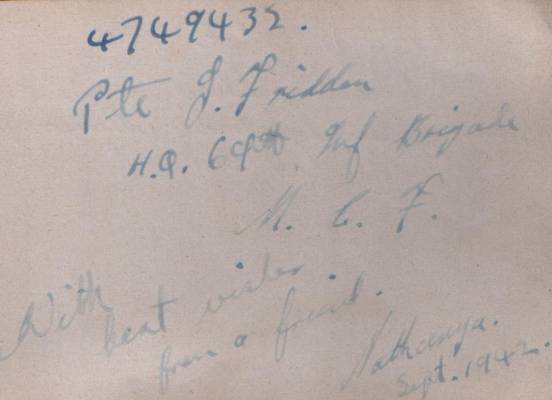 4749432.
Pte J. Fridden
H.Q. 69th Inf Brigade
M. E. F.
With
best wishes
from a friend.
Nathanya.
Sept. 1942.